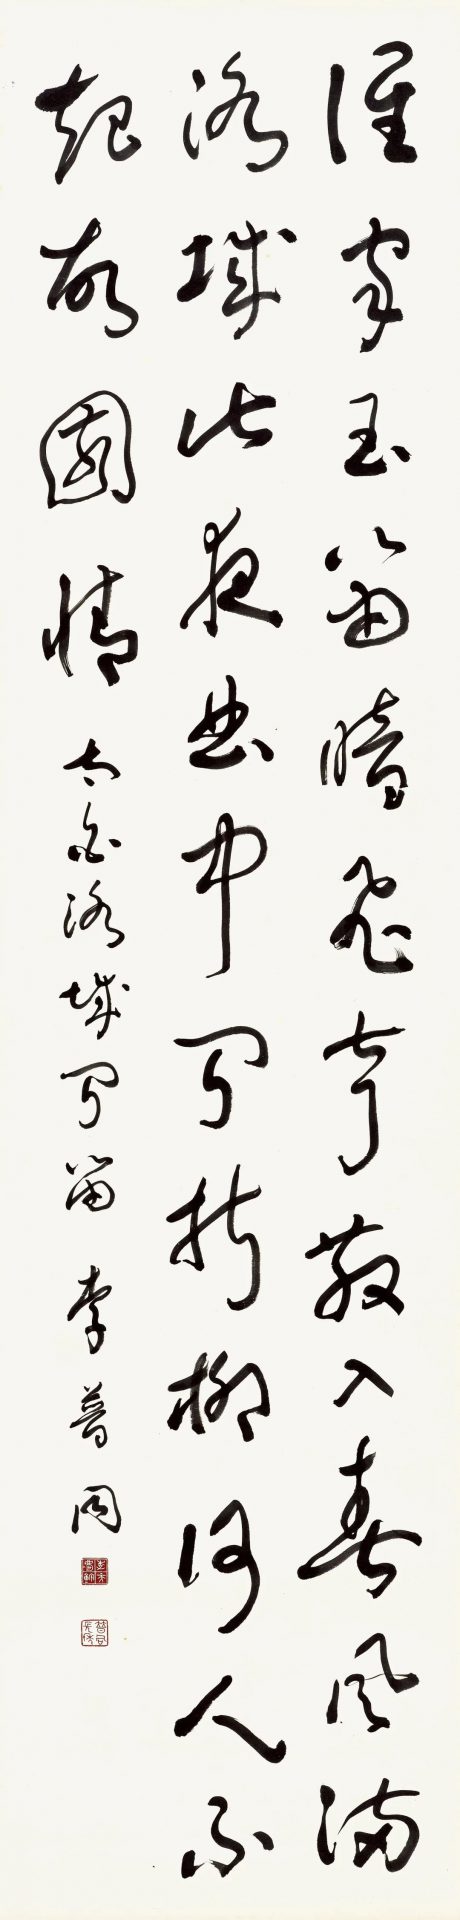 誰家玉笛暗飛聲散入春風滿
洛城此夜曲中聞折柳何人不
起故園情
太白洛城聞笛 李普同